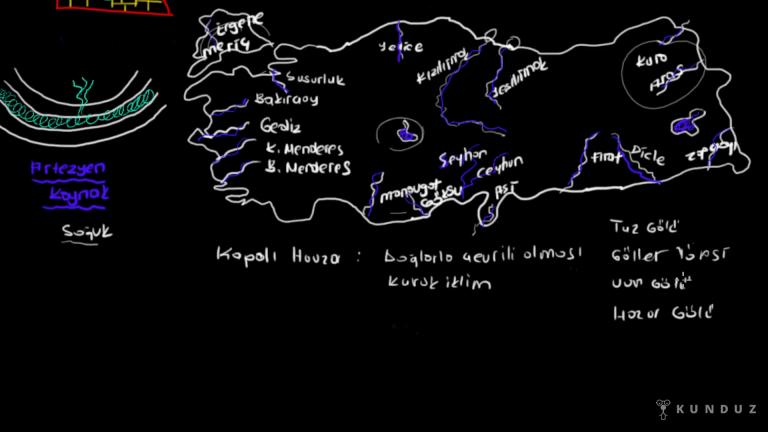 Ergene
meriç
Yenice
Kızılırmak
Yeşilırmak
Kura
Aras
Susurluk
Bakırçay
Gediz
K. Menderes
B. Menderes
Seyhan
Ceyhan
Fırat
Dicle
manavgat
Göksu
Asi
Artezyen
Kaynak
Soğuk
Kapalı Havza : Dağlarla çevrili olması
Kurak iklim
Tuz Gölü
Göller Yöresi
Van Gölü
Hazar Gölü
KUNDUZ